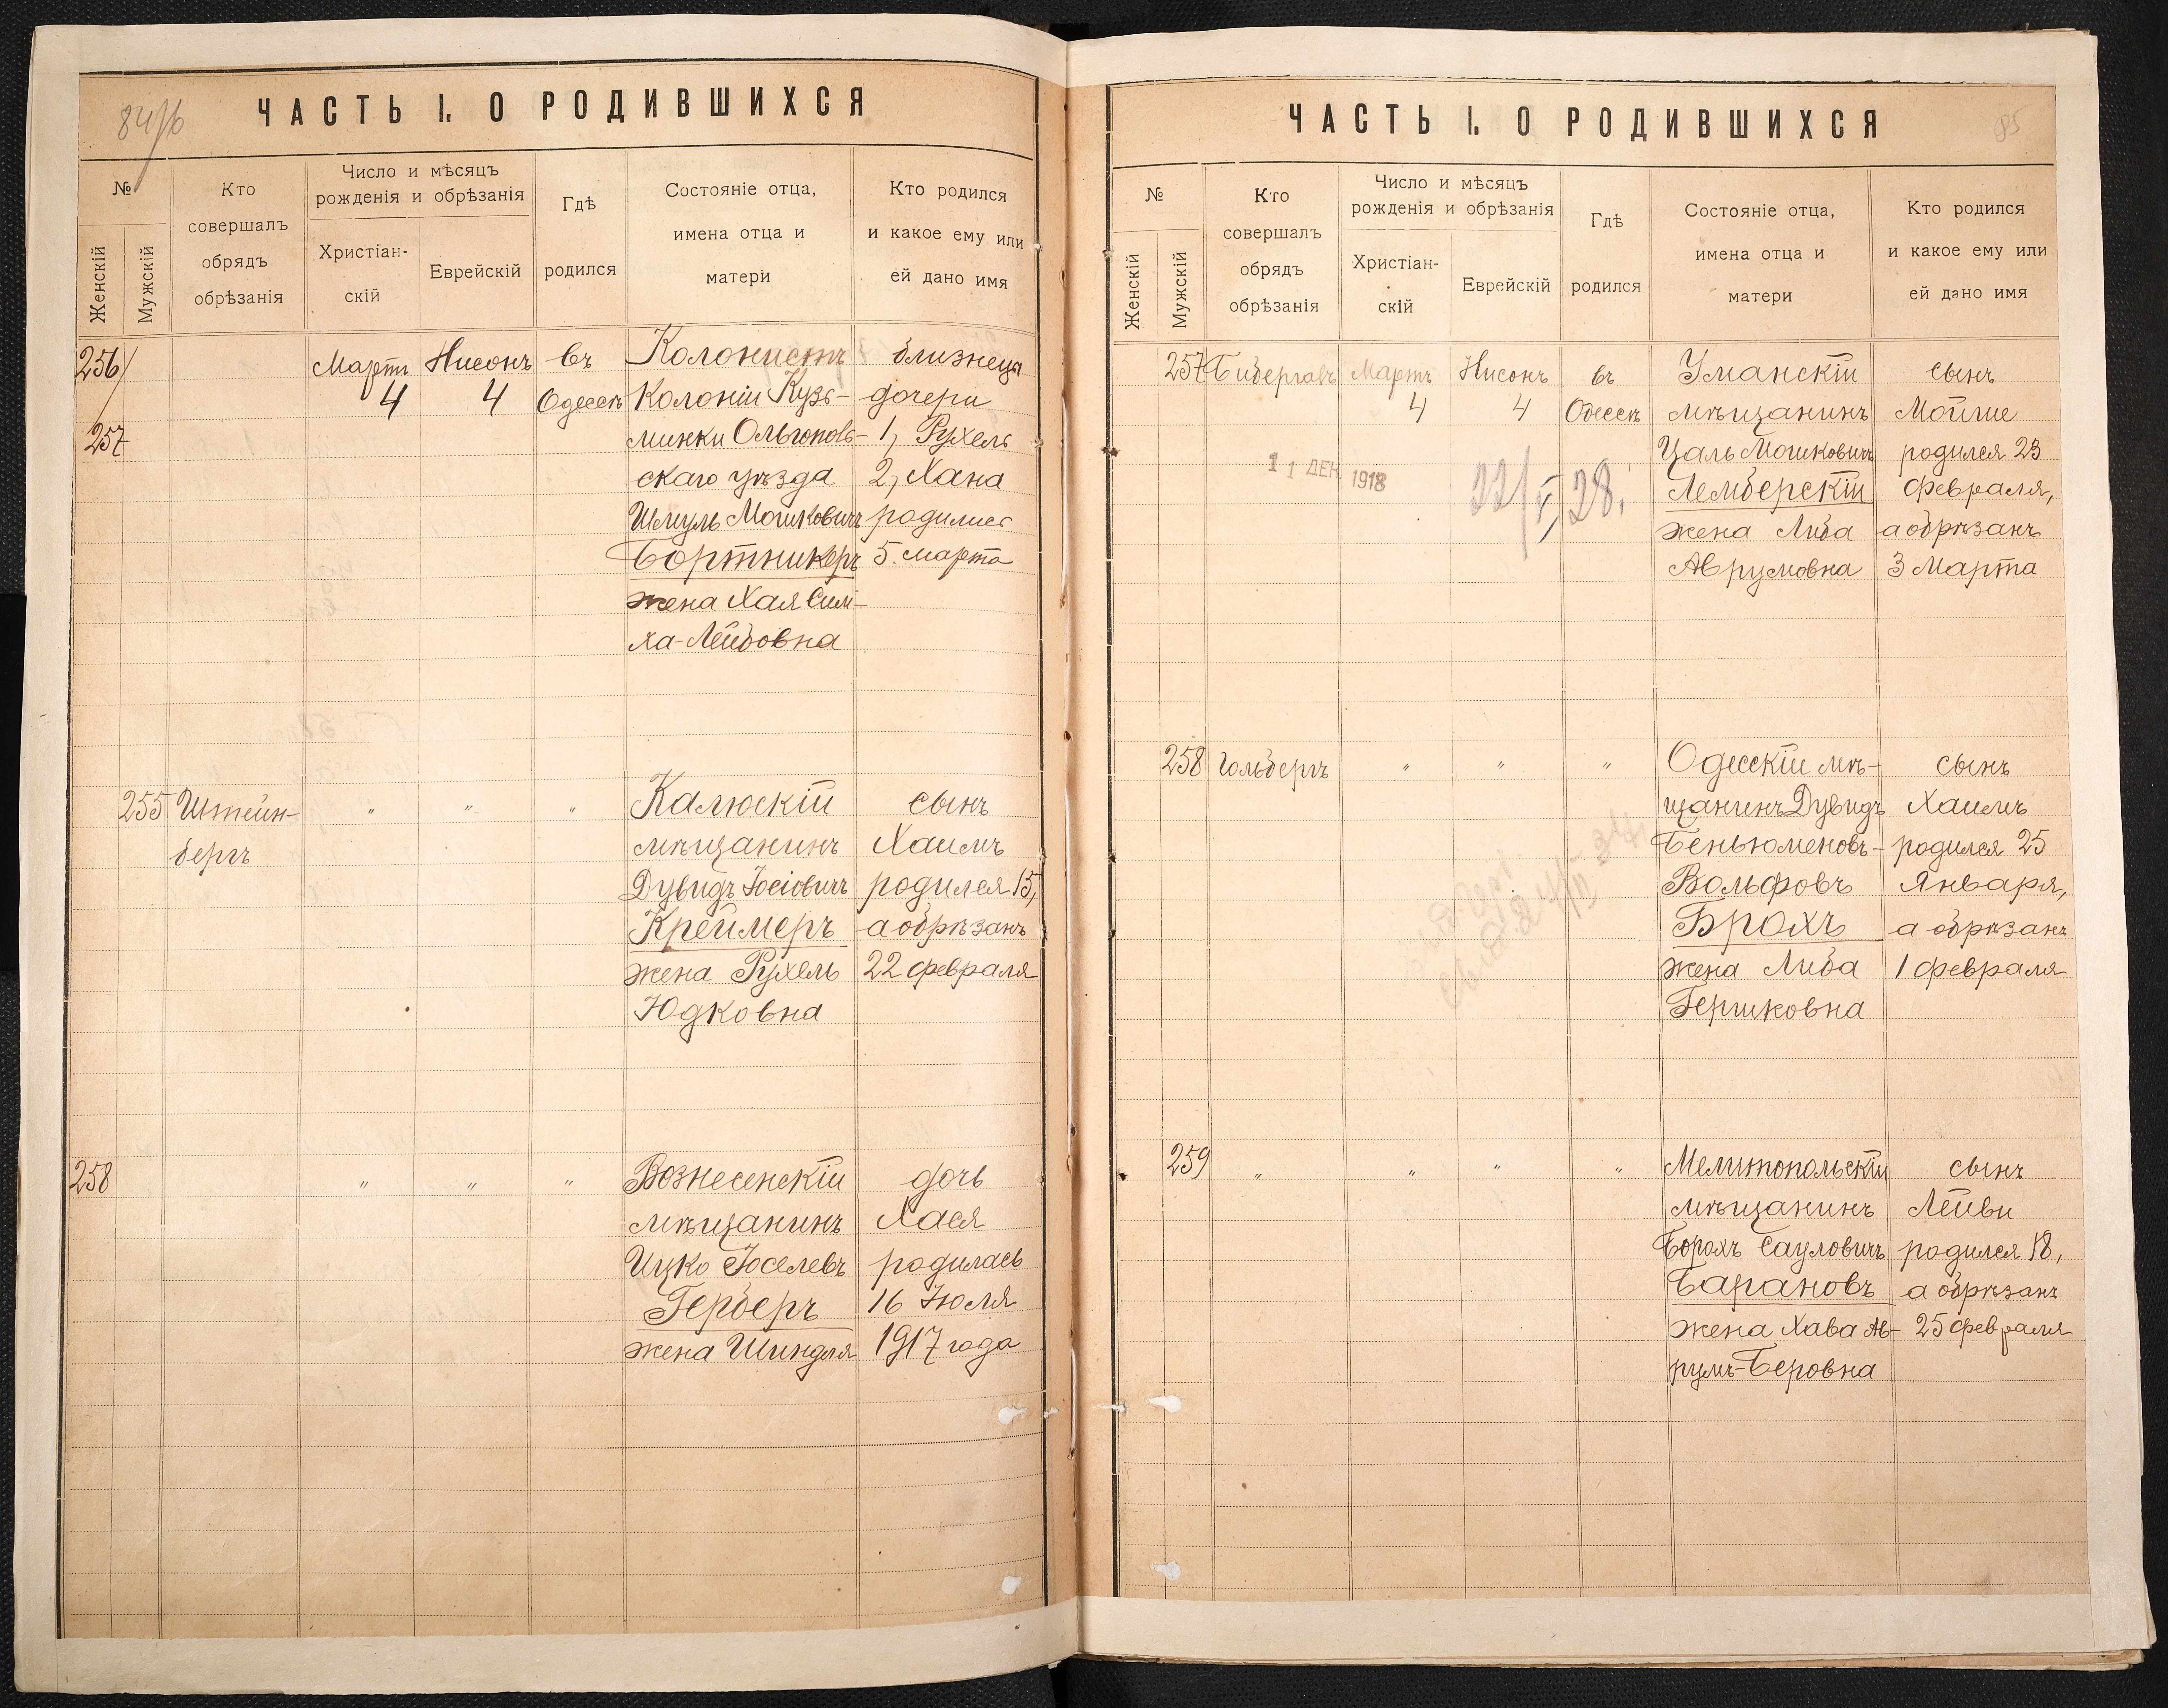 84/b
ЧАСТЬ I. О РОДИВШИХСЯ
№
Женскій
Мужскій
Кто
совершалъ
обрядъ
обрѣзанія
Число и мѣсяцъ
рожденія и обрѣзанія
Христіан-
скій
Еврейскій
Гдѣ
родился
Состояніе отца,
имена отца и
матери
Кто родился
и какое ему или
ей дано имя
256/
257
Мартъ
4
Нисонъ
4
въ
Одессѣ
Колонистъ
Колоніи Кузь-
минки Ольгополь-
скаго уѣзда
Шмуль Мошковичъ
Бортникеръ
жена Хая Сим-
ха-Лейбовна
близнецы
дочери
1, Рухель
2, Хана
родились
5. марта
255
Штейн-
бергъ
"
"
"
Калюскій
мѣщанинъ
Дувидъ Іосіовичъ
Креймеръ
жена Рухель
Юдковна
сынъ
Хаимъ
родился 15,
а обрѣзанъ
22 февраля
258
"
"
"
Вознесенскій
мѣщанинъ
Ицко Іоселевъ
Герберъ
жена Шиндля
дочь
Хася
родилась
16 Іюля
1917 года
ЧАСТЬ I. О РОДИВШИХСЯ
85
№
Женскій
Мужскій
Кто
совершалъ
обрядъ
обрѣзанія
Число и мѣсяцъ
рожденія и обрѣзанія
Христіан-
скій
Еврейскій
Гдѣ
родился
Состояніе отца,
имена отца и
матери
Кто родился
и какое ему или
ей дано имя
257
Бибергалъ
Мартъ
4
Нисонъ
4
въ
Одессѣ
11 ДЕК 1918
22/V, 28.
Уманскій
мѣщанинъ
Цаль Мошковичъ
Лемберскій
жена Либа
Аврумовна
сынъ
Мойше
родился 23
февраля,
а обрѣзанъ
3 Марта
258
Гольбергъ
"
"
"
Одесскій мѣ-
щанинъ Дувидъ
Беньюменовъ-
Вольфовъ
Брохъ
жена Либа
Гершковна
сынъ
Хаимъ
родился 25
Января,
а обрѣзанъ
1 февраля
259
"
"
"
"
Мелитопольскій
мѣщанинъ
Борохъ Сауловичъ
Барановъ
жена Хава Ав-
румъ-Беровна
сынъ
Лейви
родился 18,
а обрѣзанъ
25 февраля